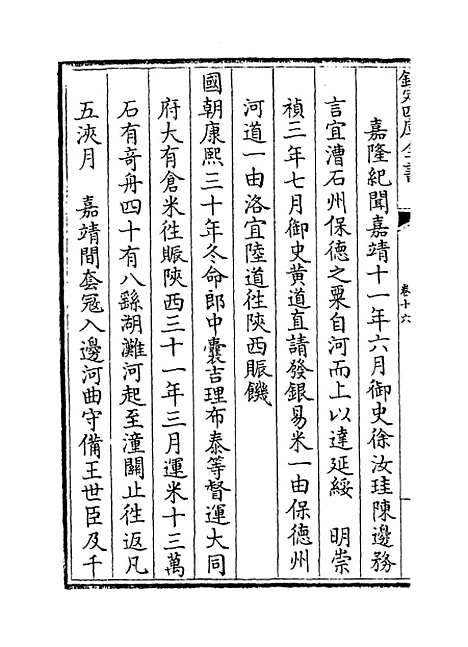 欽定四庫全書
卷十六
嘉隆紀聞嘉靖十一年六月御史徐汝珪陳邊務
言宜漕石州保德之粟自河而上以達延綏　明崇
禎三年七月御史黄道直請發銀易米一由保德州
河道一由洛宜陸道徃陜西賑饑
國朝康熙三十年冬命郎中囊吉理布泰等督運大同
府大有倉米徃賑陜西三十一年三月運米十三萬
石有竒舟四十有八繇湖灘河起至潼關止徃返凡
五浹月　嘉靖間套冦入邊河曲守備王世臣及千